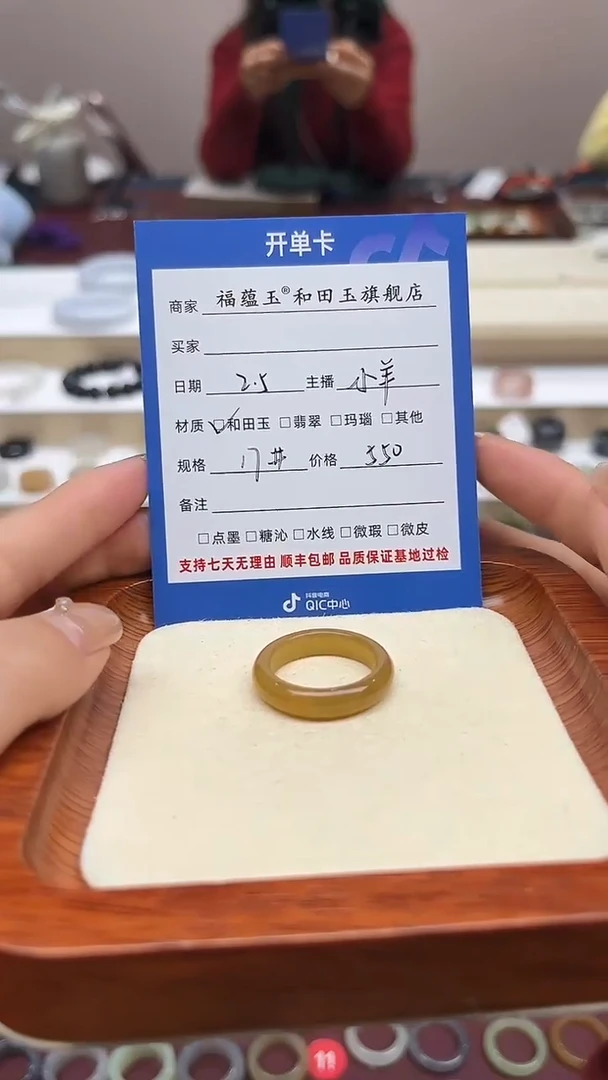 开单卡
商家 福蕴玉®和田玉旗舰店
买家
日期 2.5 主播 小羊
材质 ☑和田玉 □翡翠 □玛瑙 □其他
规格 17# 价格 350
备注
□点墨 □糖沁 □水线 □微瑕 □微皮
支持七天无理由 顺丰包邮 品质保证基地过检
抖音电商
QIC中心